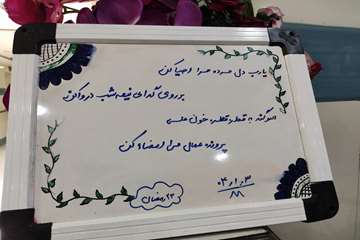 یارب دل مرده مرا احیا کن
بر روی گدای نیمه شب در وا کن
سوگند به قطره قطره خون علی
پرونده اعمال مرا امضا کن
۰۴,۱,۳
۲۳ رمضان